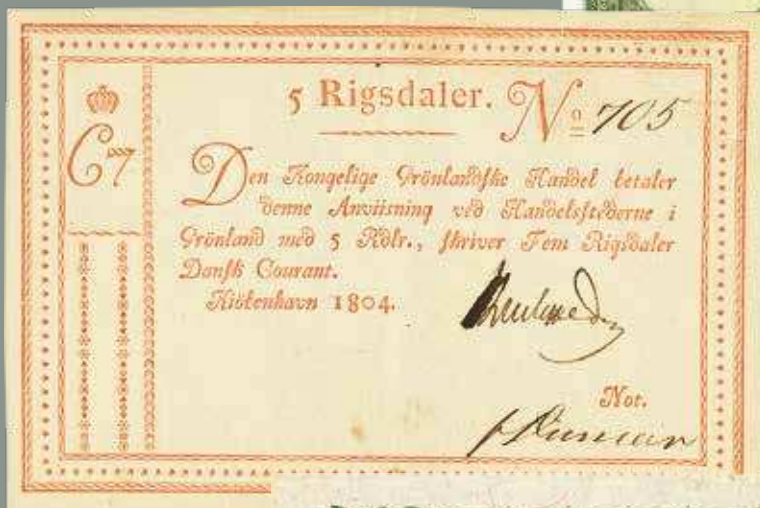 5 Rigsdaler. No 705
C7
Den Kongelige Grönlandske Handel betaler
denne Anviisning ved Handelsstederne i
Grönland med 5 Rdlr., skriver Fem Rigsdaler
Dansk Courant.
Kiöbenhavn 1804.
Not.